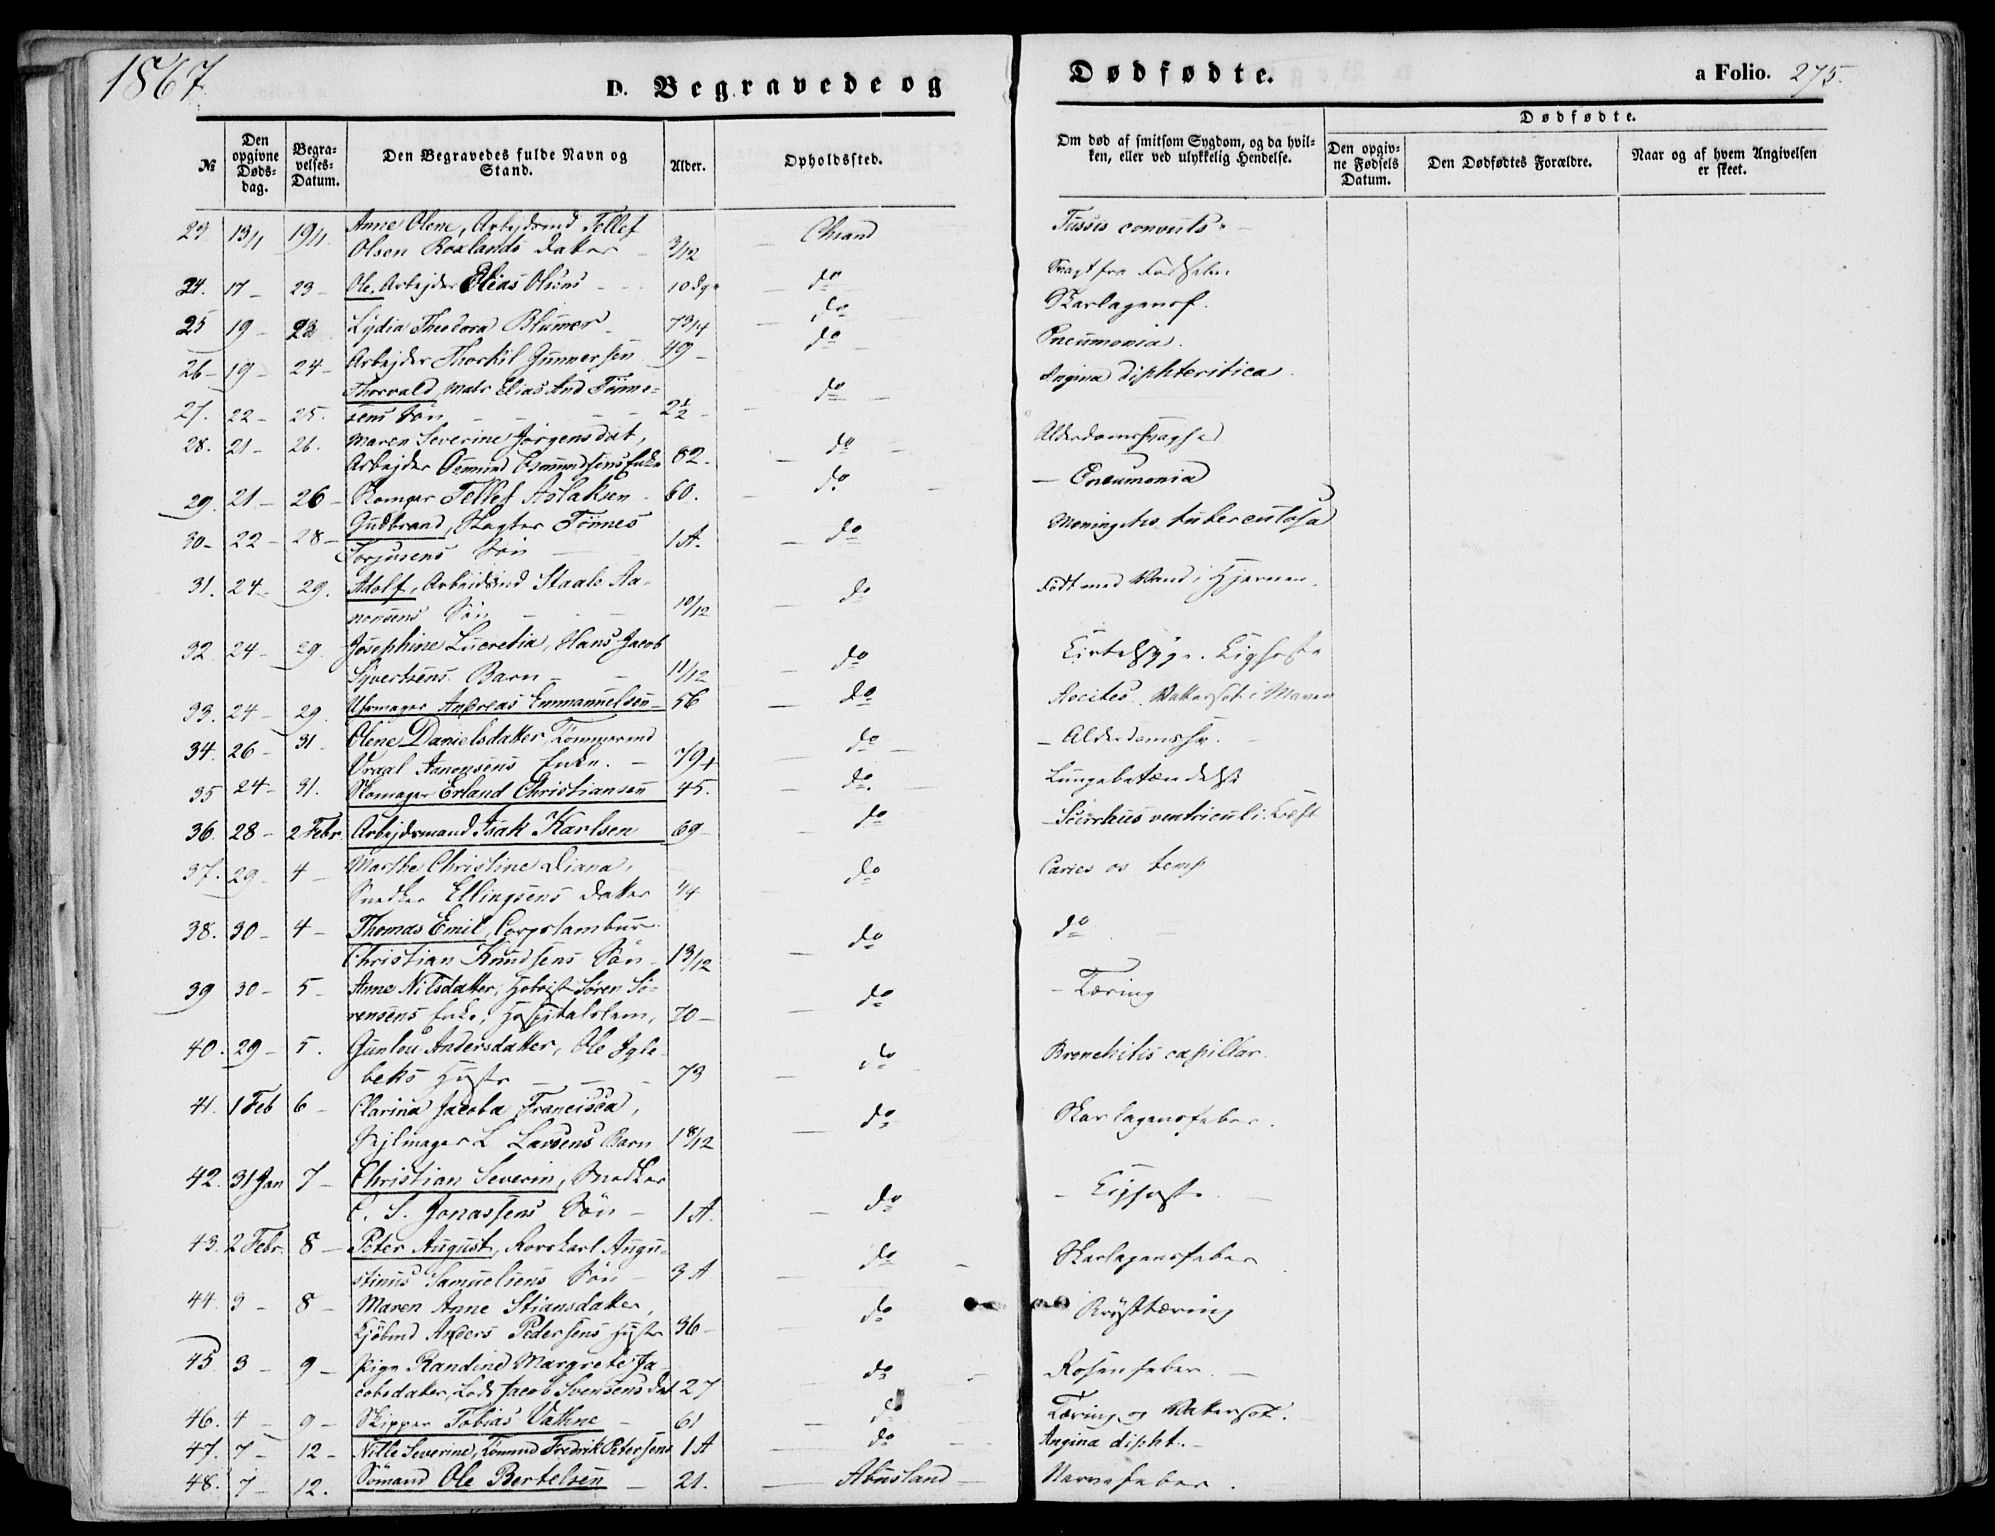 1867
D. Begravede og Dødfødte.
a Folio. 275.
№
Den opgivne Døds-dag.
Begra-velses-Datum.
Den Begravedes fulde Navn og Stand.
Alder.
Opholdssted.
Om død af smitsom Sygdom, og da hvil-ken, eller ved ulykkelig Hendelse.
Dødfødte.
Den opgiv-ne Fødsels Datum.
Den Dødfødtes Forældre.
Naar og af hvem Angivelsen er skeet.
23 13/1 19/1. Anne Olene, Arbejdsmd Tellef
Olsen Roxlands Datter 3/12 Chrand Tussis convuls.
24. 17 - 23 - Ole, Arbejder Elias Olsens 10 Dg. do Svagt fra Fødselen
25 19 - 23 Lydia Theodora Blumer 7 3/14 do Skarlagensf.
26 - 19 - 24 - Arbejder Thorkil Gunnersen 49 - do Pneumonia.
27. 22 - 25. Thorvald, Matr Elias And Tønne-
sens Søn 2½ - do Angina diphteritica.
28. 21 - 26. Maren Severine Jørgensdat,
Arbejder Osmund Osmundsens Enke 82. do Alderdomssvaghed
29. 21 - 26 - Skomger Tellef Aslaksen 60. do - Pneumonia
30 - 22 - 28 - Gudbrand, Slagter Tønnes
Torjusens Søn 1 A. do Meningitis tuberculosa
31. 24 - 29. Adolf, Arbeidsmd Staale Aa-
nensens Søn 10/12 do Født med Vand i Hjernen.
32. 24 - 29. Josephine Lucretia, Hans Jacob
Syvertsens Barn 11/12 do Kirtelsyge. Kighoste
33. 24 - 29. Uhrmager Andreas Emmanuelsen 56 do Ascites. Vattersot i Maven
34. 26 - 31. Olene Danielsdatter, Tømmermd
Vraal Aanensens Enke. 79 do - Alderdomssv.
35 24 - 31. Skomager Erland Christiansen 45. do. Lungebetændelse
36. 28 - 2 Febr Arbejdsmand Isak Karlsen 69 - do - Scirrhus ventriculi. Kræft
37. 29 - 4 - Marthe Christine Diana,
Snedker Ellingsens Datter 1/4 do Caries os temp
38. 30 - 4 - Thomas Emil, Corpstambur
Christian Knudsens Søn 13/12 do do
39 30 - 5 - Anne Nilsdatter, Søren Sø-
rensens Enke, Hospitalslem, 70 - do - Tæring
40. 29 - 5. Gunlou Andersdatter, Ole Igle-
beks Hustr 73 do Bronchitis capillar.
41. 1 Feb 6 - Clarina Jacoba Francisca,
Sejlmager L Larsens Barn 1 8/12 do Skarlagensfeber.
42. 31 Jan 7 - Christian Severin, Snedker
C. S. Jonassens Søn - 1 A. do - Kighoste
43. 2 Febr. 8 - Peter August, Rorskarl Augu-
stinus Samuelsens Søn - 3 A do Skarlagensfeber
44. 3 - 8 - Maren Anne Stiansdatter,
Kjøbmd Anders Pedersens Hustr 36 - do Brysttæring
45 3 - 9 - Pige Randine Margrete Ja-
cobsdatter, Lods Jacob Svensens Dat 27 do Rosenfeber. -
46. 4 - 9 - Skipper Tobias Vathne - 61 do Tæring og Vattersot.
47. 7 - 12 - Nille Severine, Tømmd Fredrik Petersens 1 A do Angina dipht. -
48. 7 - 12. Sømand Ole Bertelsen - 21. Abusland Nervefeber.